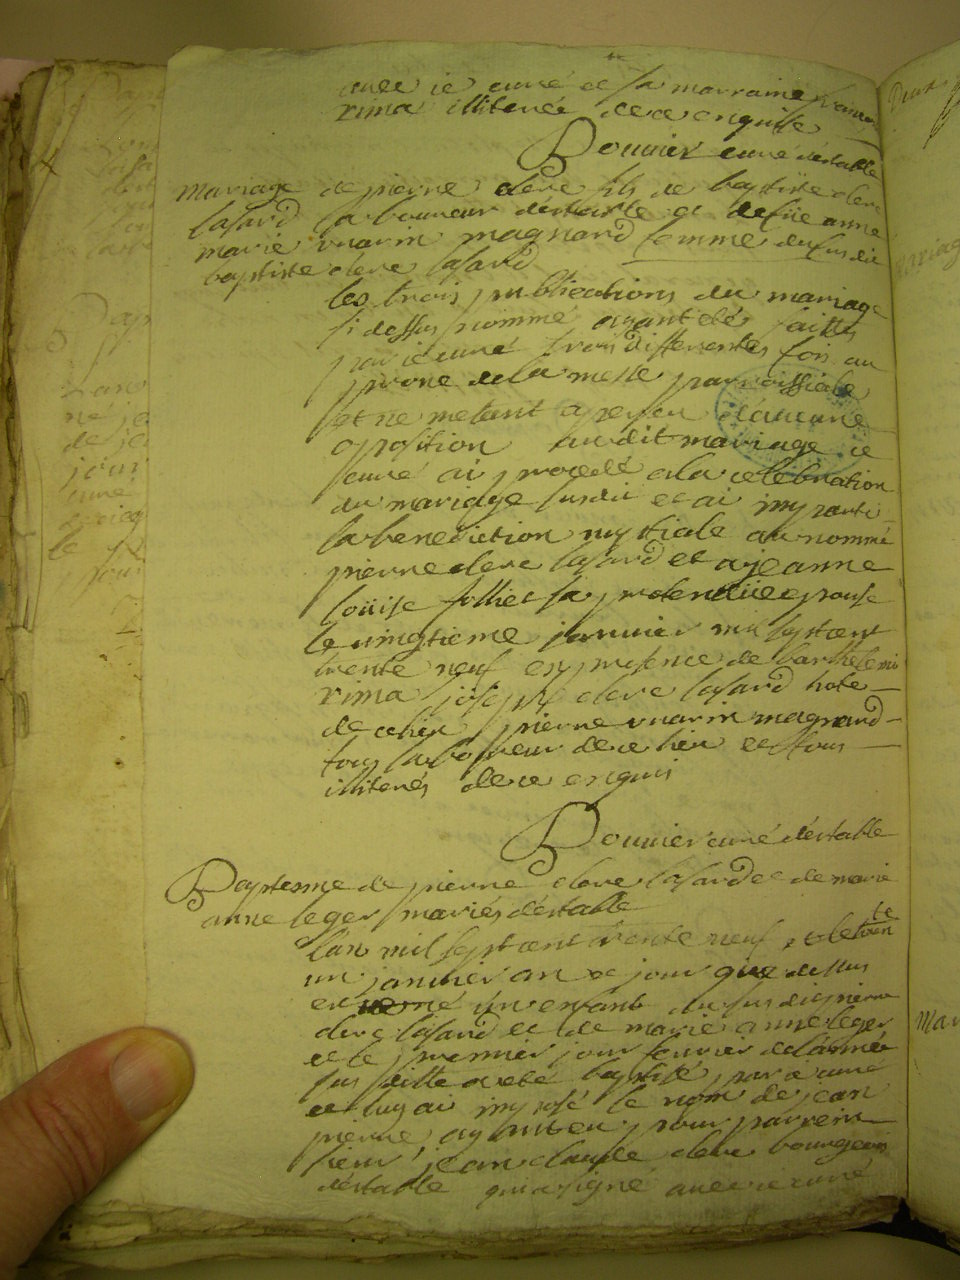 avec ie curé et sa marraine
rima illiterée de ce enquise
Bouvier curé destable
mariage de pierre clerc fils de baptiste clerc
lasard laboureur destable et defüe anne
marie vuarin magnard femme du susdit
baptiste clerc lasard
les trois publications du mariage
si dessus nommé ayant etés faittes
par ie curé trois differentes fois au
prone de la messe parroissiale
et ne metant aperçeu d'aucune
oposition audit mariage ie
curé ai procedé a la celebration
du mariage susdit et ai imparti
la benediction nuptiale au nommé
pierre clerc lasard et a jeanne
loüise folliet sa pretendüe epouse
le vingtieme janvier mil sept cent
trente neuf en presence de barthelemi
rima joseph clerc lasard hote
de ce lieu pierre vuarin magnard
tous laboureur de ce lieu et tous
illiterés de ce enquis
Bouvier curé destable
Bapteme de pierre clerc lasard et de marie
anne leger mariés destable
l'an mil sept cent trente neuf et le trente
un janvier an et jour que dessus
est né un enfant du susdit pierre
clerc lasard et de marie anne leger
et le premier jour fevrier de l'année
sus ditte a eté baptisé par ie curé
et luy ai imposé le nom de jean
pierre ayant eu pour parrein
sieur jean claude clerc bourgeois
destable qui a signé avec ie curé
mar